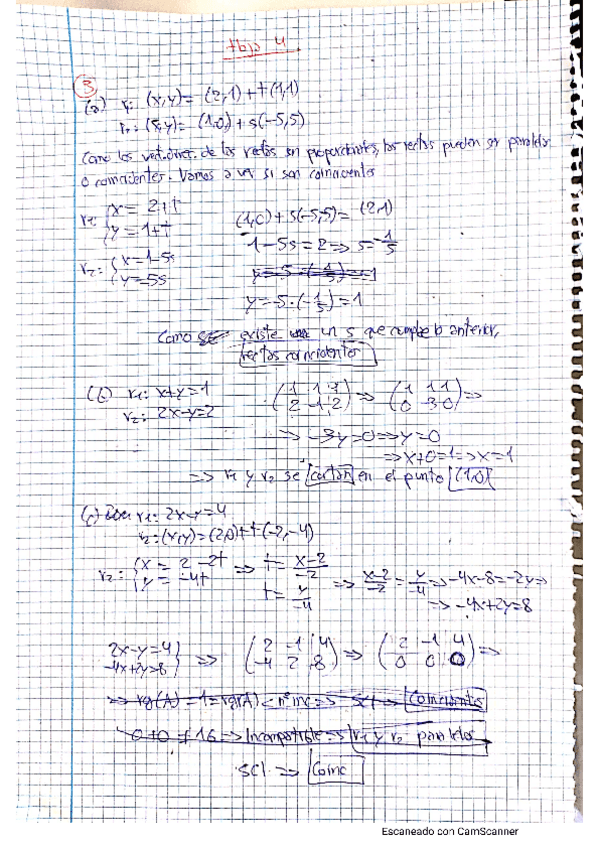 Hoja 4
3
(a) r₁: (x,y) = (2,1) + t(1,1)
r₂: (x,y) = (1,0) + s(-5,5)
Como los vect. direc. de las rectas son proporcionales, las rectas pueden ser paralelas
o coincidentes. Vamos a ver si son coincidentes
r₁: { x = 2+t
y = 1+t
(1,0) + s(-5,5) = (2,1)
1-5s = 2 => s = -1/5
r₂: { x = 1-5s
y = 5s
y = -5·(-1/5) = 1
Como existe un s que cumple lo anterior,
rectas coincidentes
(b) r₁: x+y=1
r₂: 2x-y=2
(1 1 1 / 2 -1 2) => (1 1 1 / 0 -3 0) =>
=> -3y=0 => y=0
=> x+0=1 => x=1
=> r₁ y r₂ se cortan en el punto (1,0)
(c) r₁: 2x-y=4
r₂: (x,y) = (2,0) + t(-2,-4)
r₂: { x = 2-2t
y = -4t
=> t = x-2/-2
t = y/-4
=> x-2/-2 = y/-4 => -4x-8 = -2y =>
=> -4x+2y=8
2x-y=4
-4x+2y=8 } => (2 -1 | 4 / -4 2 | 8) => (2 -1 4 / 0 0 | 0) =>
=> rg(A) = 1 = rg(A) < nº inc => SCI => Coincidentes
0+0 ≠ 16 => Incompatible => r₁ y r₂ paralelas
SCI => Coinc
Escaneado con CamScanner